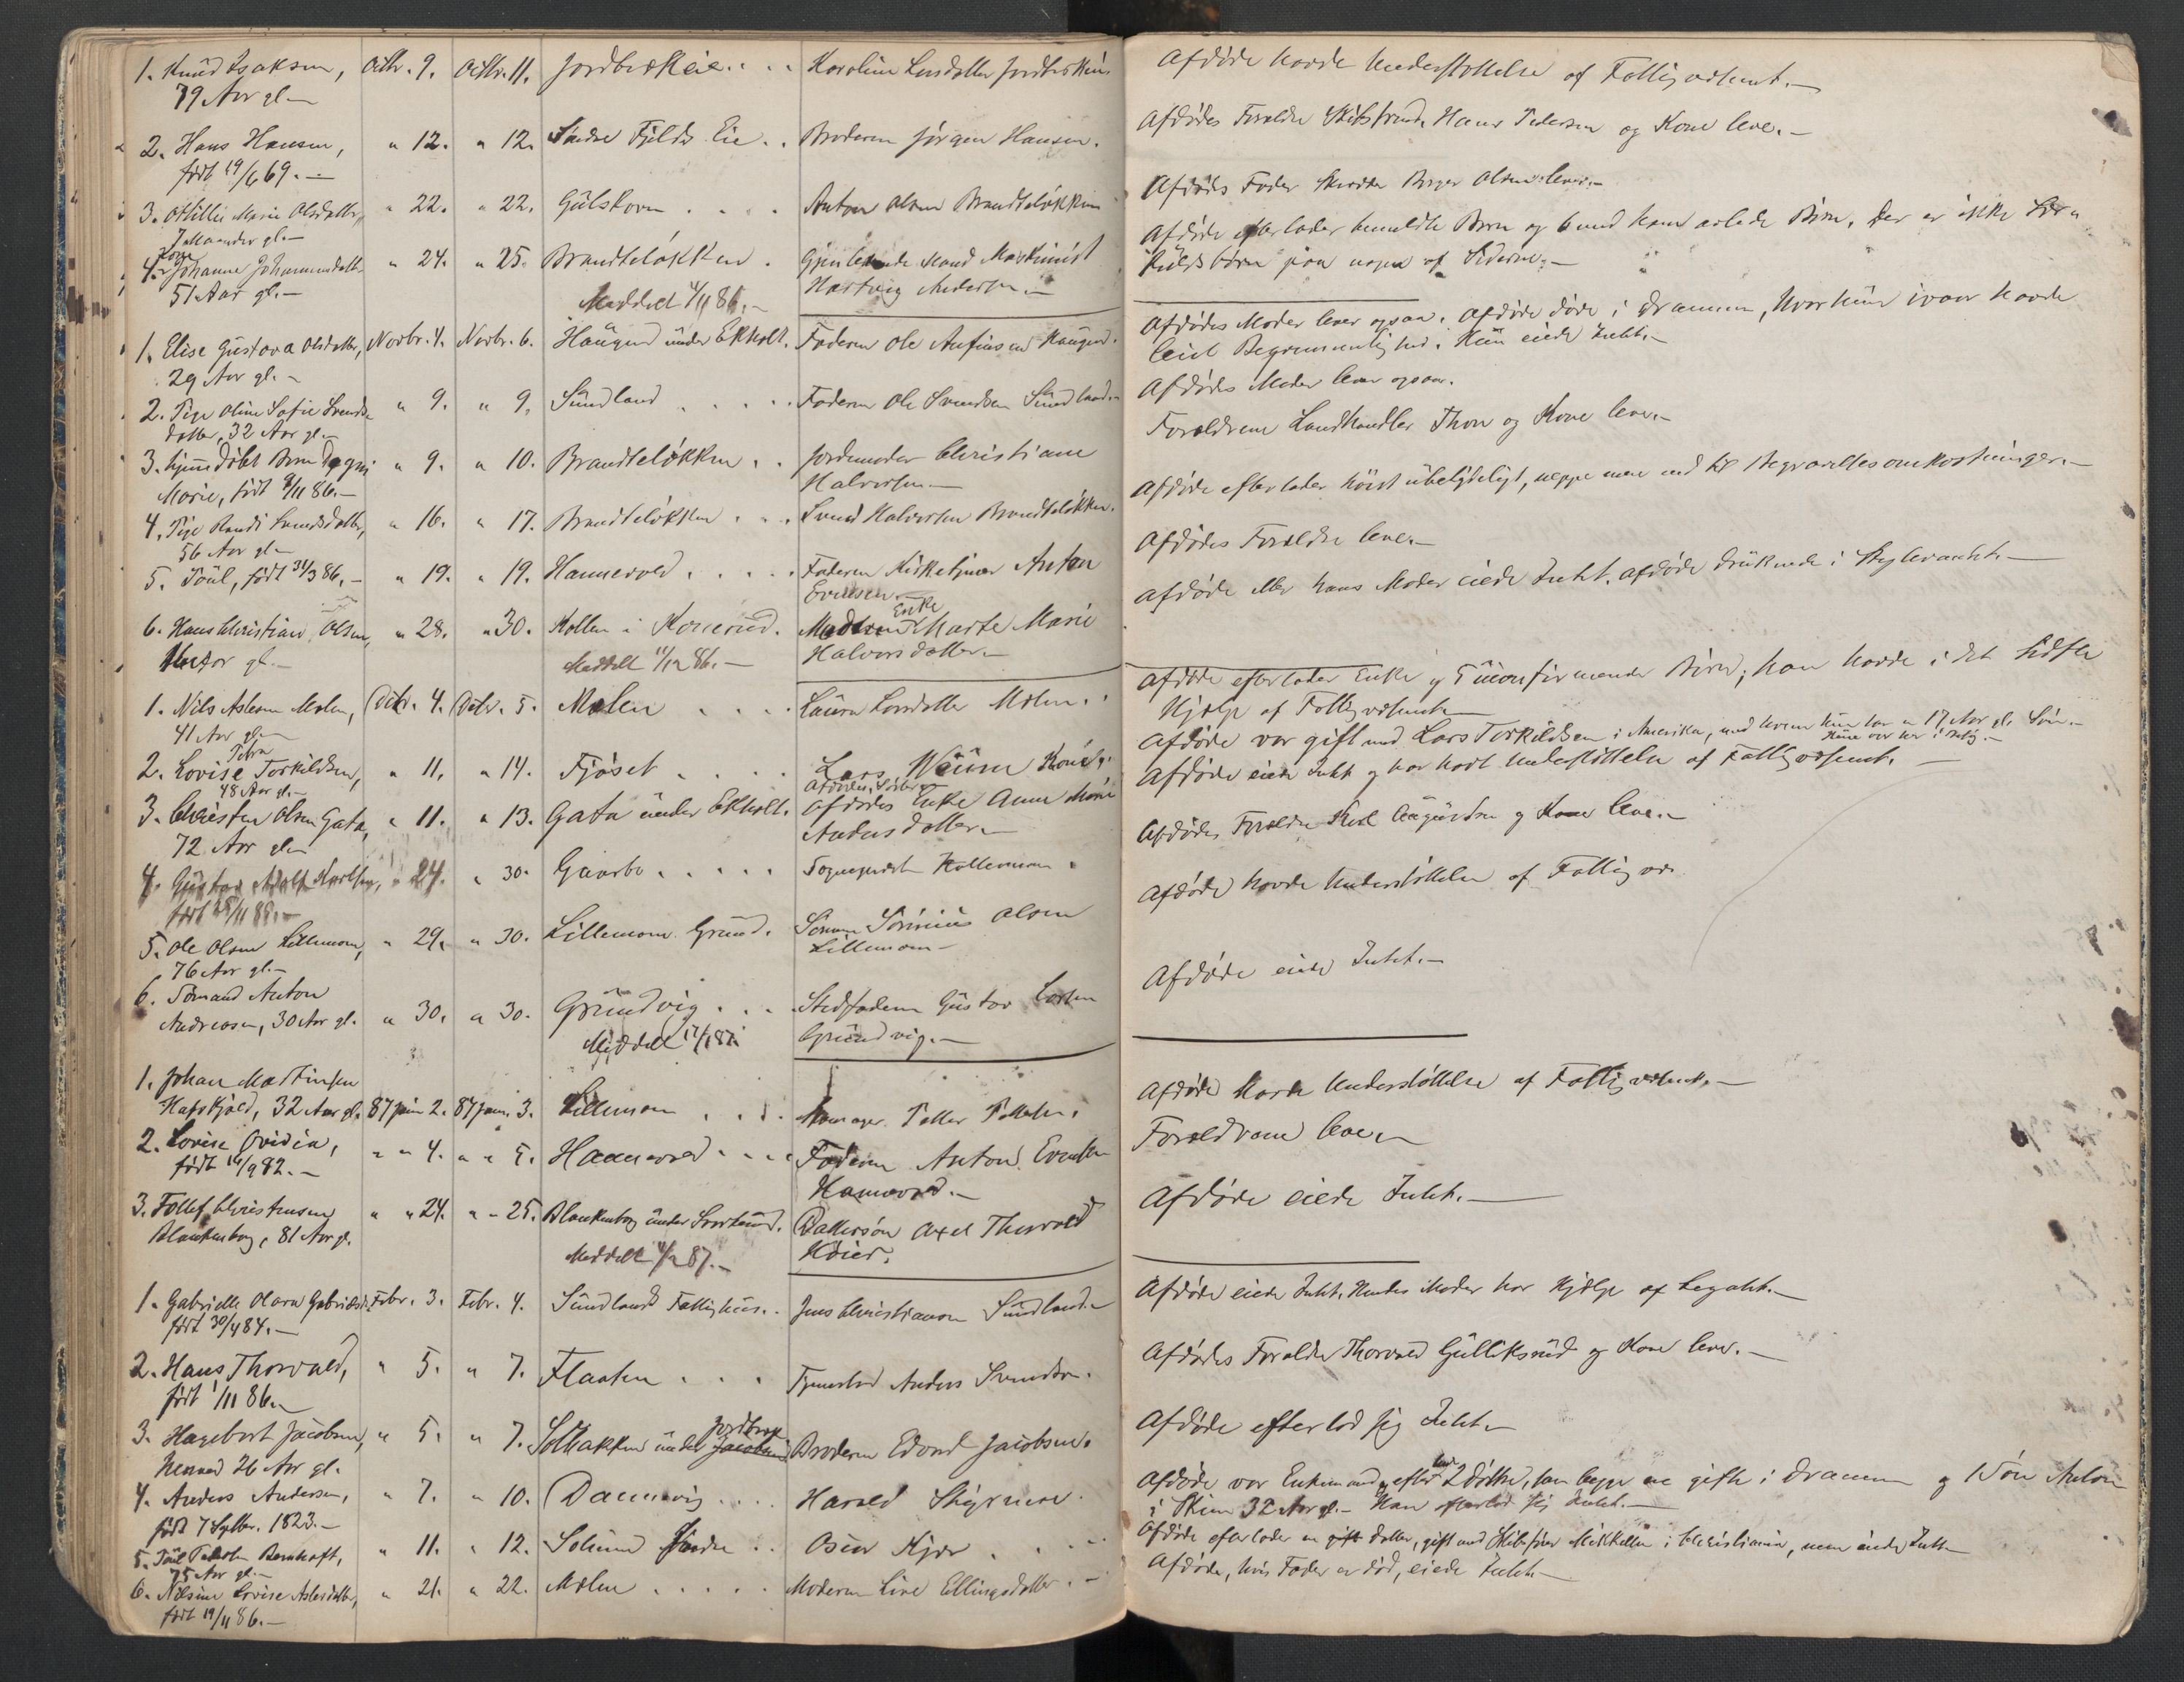 1. Knud Isaksen, Octbr. 9. Octbr. 11. Jordbrækeie . . . Karoline Larsdatter Jordbrækeie
79 Aar gl. —
2. Hans Hansen, " 12. " 12. Søndre Fjelds Eie . . Broderen Jørgen Hansen.
født 19/6 69. —
3. Ottillie Marie Olsdatter, " 22. " 22. Gulskoven . . . . Anton Olsen Brandteløkken
7 Maaneder gl. —
4. Kone Johanne Johannesdatter " 24. " 25. Brandteløkken . Gjenlevende Mand Maskinist
51 Aar gl. — Hartvig Andersen. —
Meddelt 4/11 86. —
1. Elise Gustava Olsdatter, Novbr. 4. Novbr. 6. Haugen under Ekholt. Faderen Ole Anfinsen Haugen.
29 Aar gl. —
2. Pige Oline Sofie Svends- " 9. " 9. Sundland . . . . . Faderen Ole Svendsen Sundland. —
datter, 32 Aar gl. —
3. hjemdøbt Barn Dagny " 9. " 10. Brandteløkken . . Jordemoder Christiane
Marie, født 8/11 86. — Halvorsen —
4. Pige Randi Svendsdatter, " 16. " 17. Brandteløkken . . . Svend Halvorsen Brandteløkken.
56 Aar gl. —
5. Poul, født 31/3 86. — " 19. " 19. Hannevold . . . . . Faderen Kirketjener Anton
Evensen. —
6. Hans Christian Olsen, " 28. " 30. Kollen i Konerud. Moderen Enke Marte Marie
Aar gl. — Halvorsdatter. —
Meddelt 11/12 86. —
1. Nils Aslesen Mælen, Decbr. 4. Decbr. 5. Mælen . . . . Laura Larsdatter Mælen.
41 Aar gl. —
2. Lovise Petra Torkildsen, " 11. " 14. Fjøset . . . . . Lars
48 Aar gl. — Afdødes
3. Christen Olsen Gata, " 11. " 13. Gata under Ekholt. Afdødes Enke Anne Marie
72 Aar gl. — Andersdatter. —
4. Gustav Adolf Karlsen, " 24. " 30. Gaarbo . . . . . Sognepræst
født 25/11 85. —
5. Ole Olsen Lillemoen, " 29. " 30. Lillemoens Grund. Sønnen Sørinius Olsen
76 Aar gl. — Lillemoen —
6. Sømand Anton
Andreasen, 30 Aar gl. " 30. " 30. Grundvig . . . Stedfaderen Gustav Carlsen
Meddelt 12/1 87. Grundvig. —
1. Johan Martinsen
32 Aar gl. 87 Janu. 2. 87 Janu. 3. Lillemoen . . . .
2. Lovise Ovidia, " " 4. " " 5. Hannevold . . . . Faderen Anton Evensen
født 16/9 82. — Hannevold. —
3. Tollef Christensen " " 24. " " 25. Blankenborg under Dattersøn Axel Thorvald
Blankenborg, 81 Aar gl. Høier.
Meddelt 4/2 87. —
1. Gabrielle Olava Febr. 3. Febr. 4. Sundlands Fattighus. . Jens Christiansen Sundland. —
født 30/4 84. —
2. Hans Thorvald, " 5. " 7. Flaaten . . . Anders Svendsen.
født 1/11 86. —
3. Hagebart Jacobsen, " 5. " 7. Solbakken under Jordbræk Broderen Edvard Jacobsen.
26 Aar gl.
4. Anders Andersen, " 7. " 10. Dannevig . . . . Harald
født 7 Septbr. 1823. —
5. " 11. " 12. Solum Søndre . . Oscar Kjær . . . .
75 Aar gl. —
6. Nilsine Lovise Aslesdatter, " 21. " 22. Mælen . . . . . Moderen Live Ellingsdatter. —
født 19/11 86. —
Afdøde havde Understøttelse af Fattigvæsenet. —
Afdødes Forældre Skibstømmerm. Hans Pedersen og Kone lever. —
Afdødes Fader Olsen lever. —
Afdøde efterlader Børn og 6 med ham avlede Børn. Der er ikke Sær-
kuldsbørn paa nogen af Siderne. —
Afdødes Moder lever ogsaa. Afdøde døde i Drammen, hvor hun havde
leiet. Hun eiede Intet. —
Afdødes Moder lever ogsaa.
Forældrene Landhandler Thon og Kone lever. —
Afdøde efterlader høist ubetydeligt, neppe mere end til Begravelsesomkostninger. —
Afdødes Forældre lever. —
Afdøde eller hans Moder eiede Intet. Afdøde druknede i —
Afdøde efterlader Enke og 5 ukonfirmerede Børn; han havde i det sidste
Hjælp af Fattigvæsenet —
Afdøde var gift med Lars Torkildsen i Amerika, med hvem hun har en 17 Aar gl. Søn. —
Afdøde eiede Intet og har havt Understøttelse af Fattigvæsenet. —
Afdødes Forældre Karl Augustsen og Kone lever. —
Afdøde havde Understøttelse af Fattigvæs.
Afdøde eiede Intet. —
Afdøde havde Understøttelse af Fattigvæsenet. —
Forældrene lever. —
Afdøde eiede Intet. —
Afdøde eiede Intet. Hendes Moder har Hjælp af Legatet. —
Afdødes Forældre Thorvald Gulliksrud og Kone lever. —
Afdøde efterlod sig Intet —
Afdøde var Enkemand og efterlod 2 Døtre, som begge er gifte i Drammen og 1 Søn Anton
i Skien 32 Aar gl. — Han efterlod sig Intet. —
Afdøde efterlader en Datter, gift med Skibsfører Mikkelsen i Christiania, men eiede Intet —
Afdøde, hvis Fader er død, eiede Intet. —